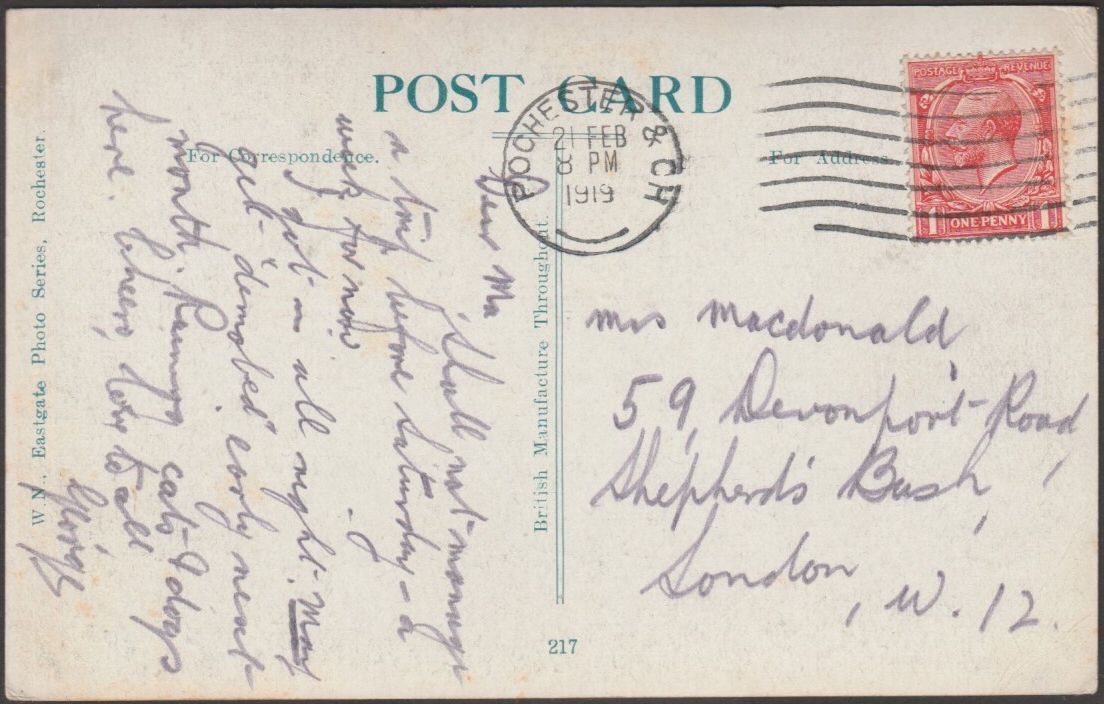 POST CARD
For Correspondence.
For Address
ROCHESTER & CH
21 FEB
8 PM
1919
POSTAGE REVENUE
1 ONE PENNY 1
Dear Ma
Shall not manage
a trip before Saturday - a
week for now
I got in all right. May
get "demobed" early next
month. Raining cats & dogs
here. Cheero, love to all
mrs Macdonald,
59, Devonport Road,
Shepherd's Bush,
London, W. 12.
W.N., Eastgate Photo Series, Rochester.
British Manufacture Throughout.
217